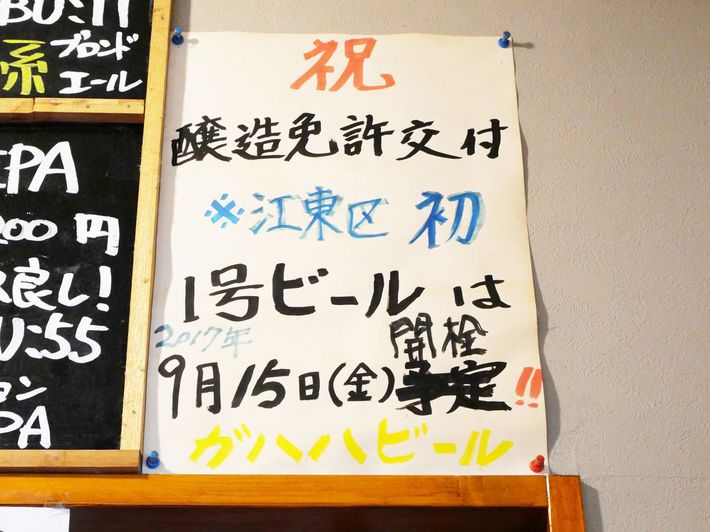 BU:11
ブロンド
エール
IPA
円
良し!
U:55
PA
祝
醸造免許交付
※江東区 初
1号ビールは
2017年
開栓
9月15日(金)予定!!
ガハハビール